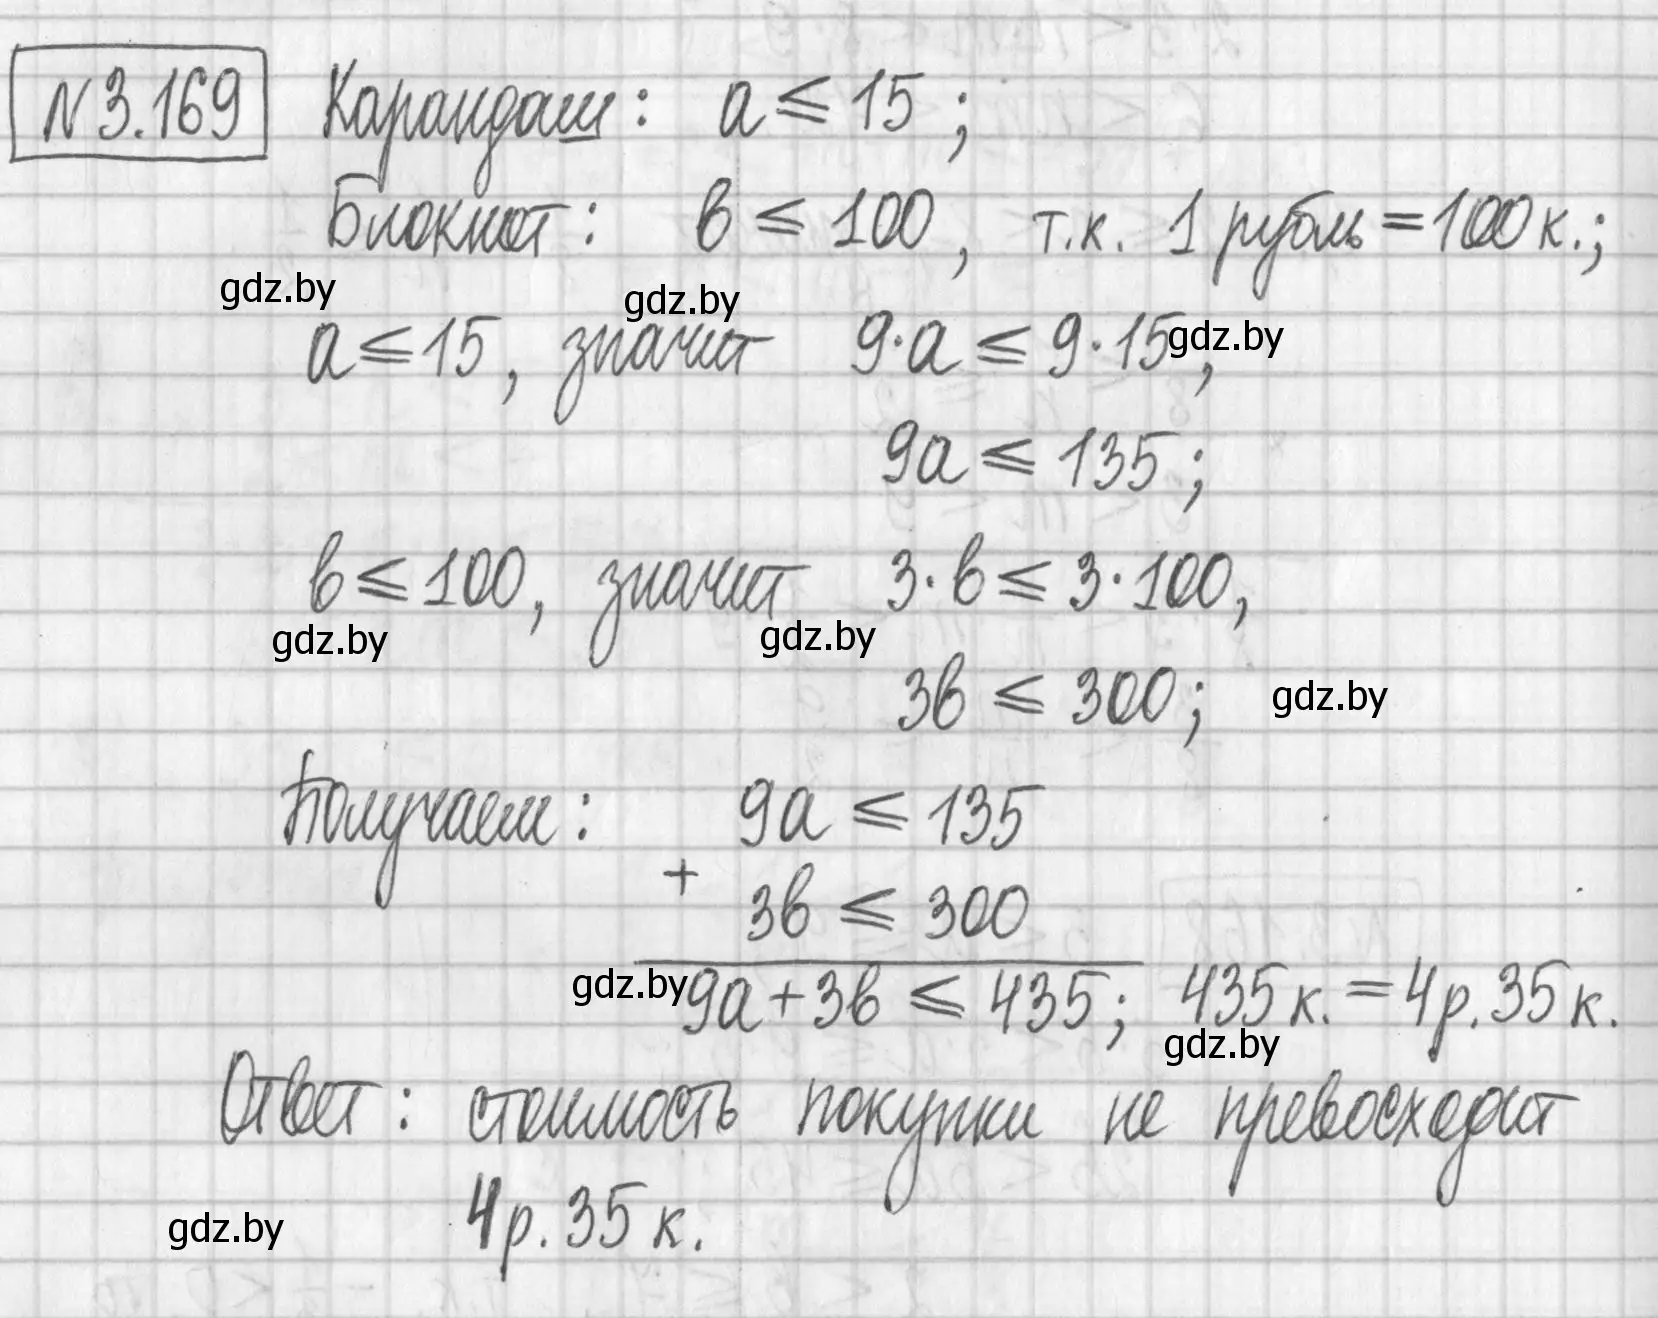 №3.169 Карандаш: a ⩽ 15;
Блокнот: в ⩽ 100, т.к. 1 рубль = 100 к.;
gdz.by gdz.by
a ⩽ 15, значит 9·a ⩽ 9·15, gdz.by
9a ⩽ 135;
в ⩽ 100, значит 3·в ⩽ 3·100,
gdz.by gdz.by
3в ⩽ 300; gdz.by
Получаем: 9a ⩽ 135
+
3в ⩽ 300
gdz.by 9a + 3в ⩽ 435; 435 к. = 4 р. 35 к.
gdz.by
Ответ: стоимость покупки не превосходит
gdz.by 4 р. 35 к.